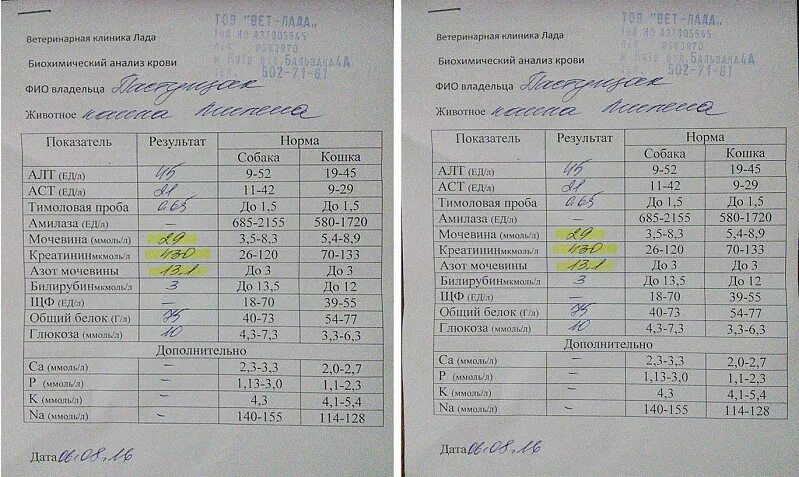 Ветеринарная клиника Лада
ТОВ "ВЕТ-ЛАДА"
Биохимический анализ крови
502-71-61
ФИО владельца Пастущак
Животное кошка
Показатель Результат Норма
Собака Кошка
АЛТ (ЕД/л) 45 9-52 19-45
АСТ (ЕД/л) 21 11-42 9-29
Тимоловая проба 0,65 До 1,5 До 1,5
Амилаза (ЕД/л) – 685-2155 580-1720
Мочевина (ммоль/л) 29 3,5-8,3 5,4-8,9
Креатининмкмоль/л 430 26-120 70-133
Азот мочевины 13,1 До 3 До 3
Билирубинмкмоль/л 3 До 13,5 До 12
ЩФ (ЕД/л) – 18-70 39-55
Общий белок (Г/л) 75 40-73 54-77
Глюкоза (ммоль/л) 10 4,3-7,3 3,3-6,3
Дополнительно
Ca (ммоль/л) – 2,3-3,3 2,0-2,7
P (ммоль/л) – 1,13-3,0 1,1-2,3
K (ммоль/л) – 4,3 4,1-5,4
Na (ммоль/л) – 140-155 114-128
Дата 06.08.16
Ветеринарная клиника Лада
ТОВ "ВЕТ-ЛАДА"
Биохимический анализ крови
502-71-61
ФИО владельца Пастущак
Животное кошка
Показатель Результат Норма
Собака Кошка
АЛТ (ЕД/л) 45 9-52 19-45
АСТ (ЕД/л) 21 11-42 9-29
Тимоловая проба 0,65 До 1,5 До 1,5
Амилаза (ЕД/л) – 685-2155 580-1720
Мочевина (ммоль/л) 29 3,5-8,3 5,4-8,9
Креатининмкмоль/л 430 26-120 70-133
Азот мочевины 13,1 До 3 До 3
Билирубинмкмоль/л 3 До 13,5 До 12
ЩФ (ЕД/л) – 18-70 39-55
Общий белок (Г/л) 75 40-73 54-77
Глюкоза (ммоль/л) 10 4,3-7,3 3,3-6,3
Дополнительно
Ca (ммоль/л) – 2,3-3,3 2,0-2,7
P (ммоль/л) – 1,13-3,0 1,1-2,3
K (ммоль/л) – 4,3 4,1-5,4
Na (ммоль/л) – 140-155 114-128
Дата 06.08.16